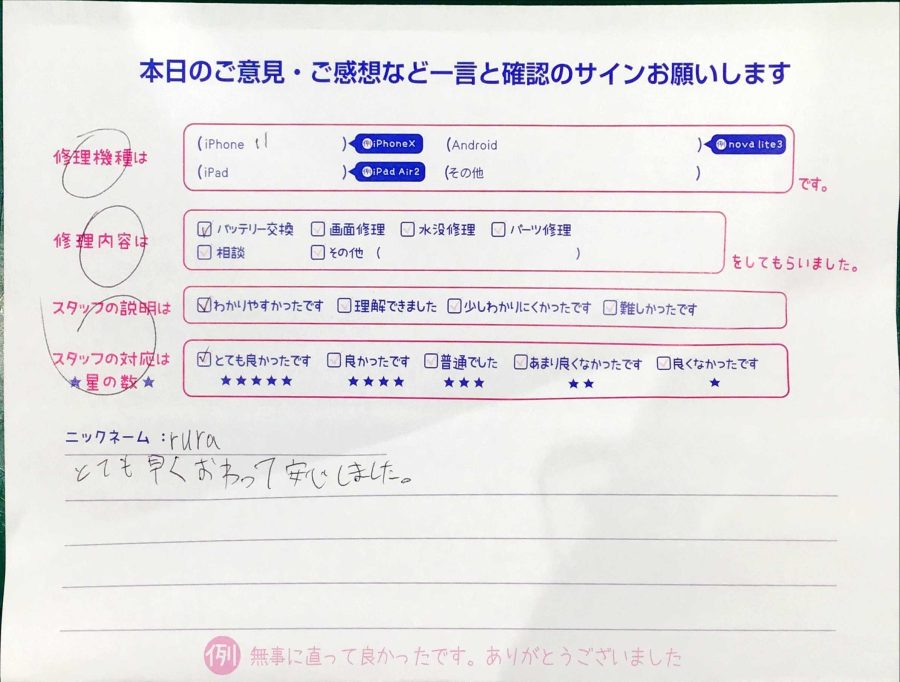 本日のご意見・ご感想など一言と確認のサインお願いします
修理機種は
(iPhone 11 ) 例 iPhoneX (Android ) 例 nova lite3
(iPad ) 例 iPad Air2 (その他 ) です。
修理内容は
バッテリー交換 画面修理 水没修理 パーツ修理
相談 その他 ( ) をしてもらいました。
スタッフの説明は わかりやすかったです 理解できました 少しわかりにくかったです 難しかったです
スタッフの対応は とても良かったです 良かったです 普通でした あまり良くなかったです 良くなかったです
★星の数★ ★★★★★ ★★★★ ★★★ ★★ ★
ニックネーム:rura
とても早くおわって安心しました。
例 無事に直って良かったです。ありがとうございました